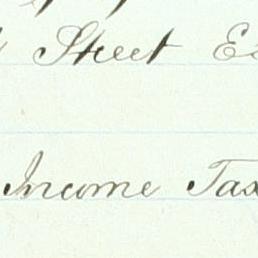 Street E
Income Tax